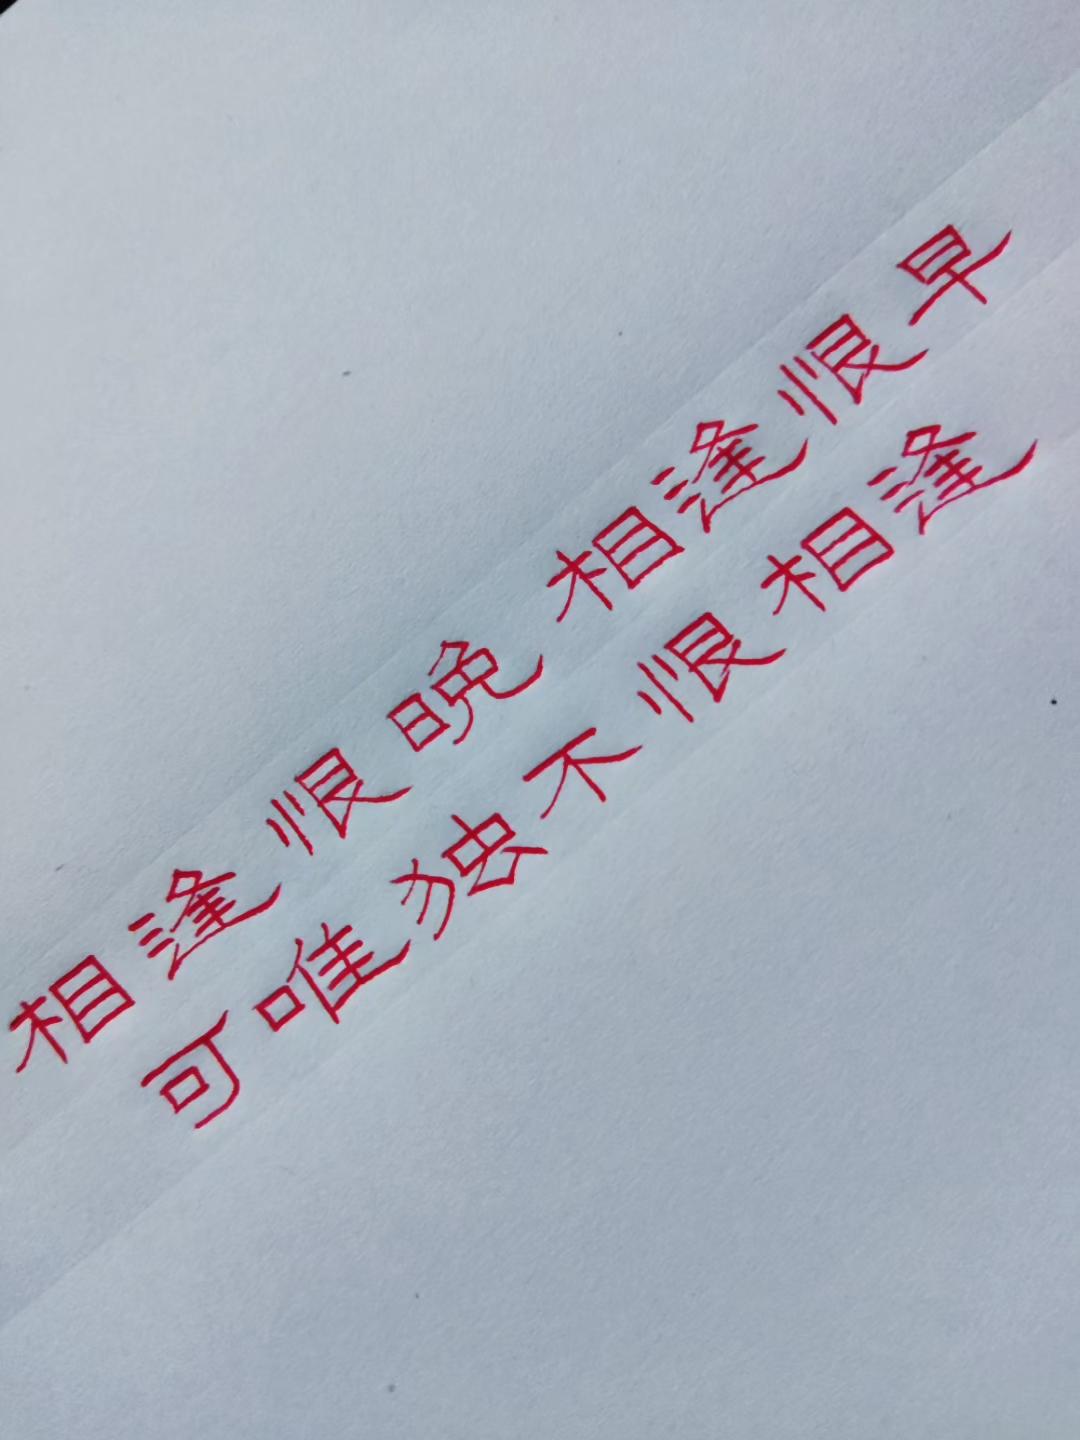 相逢恨晚 相逢恨早
可唯独不恨相逢